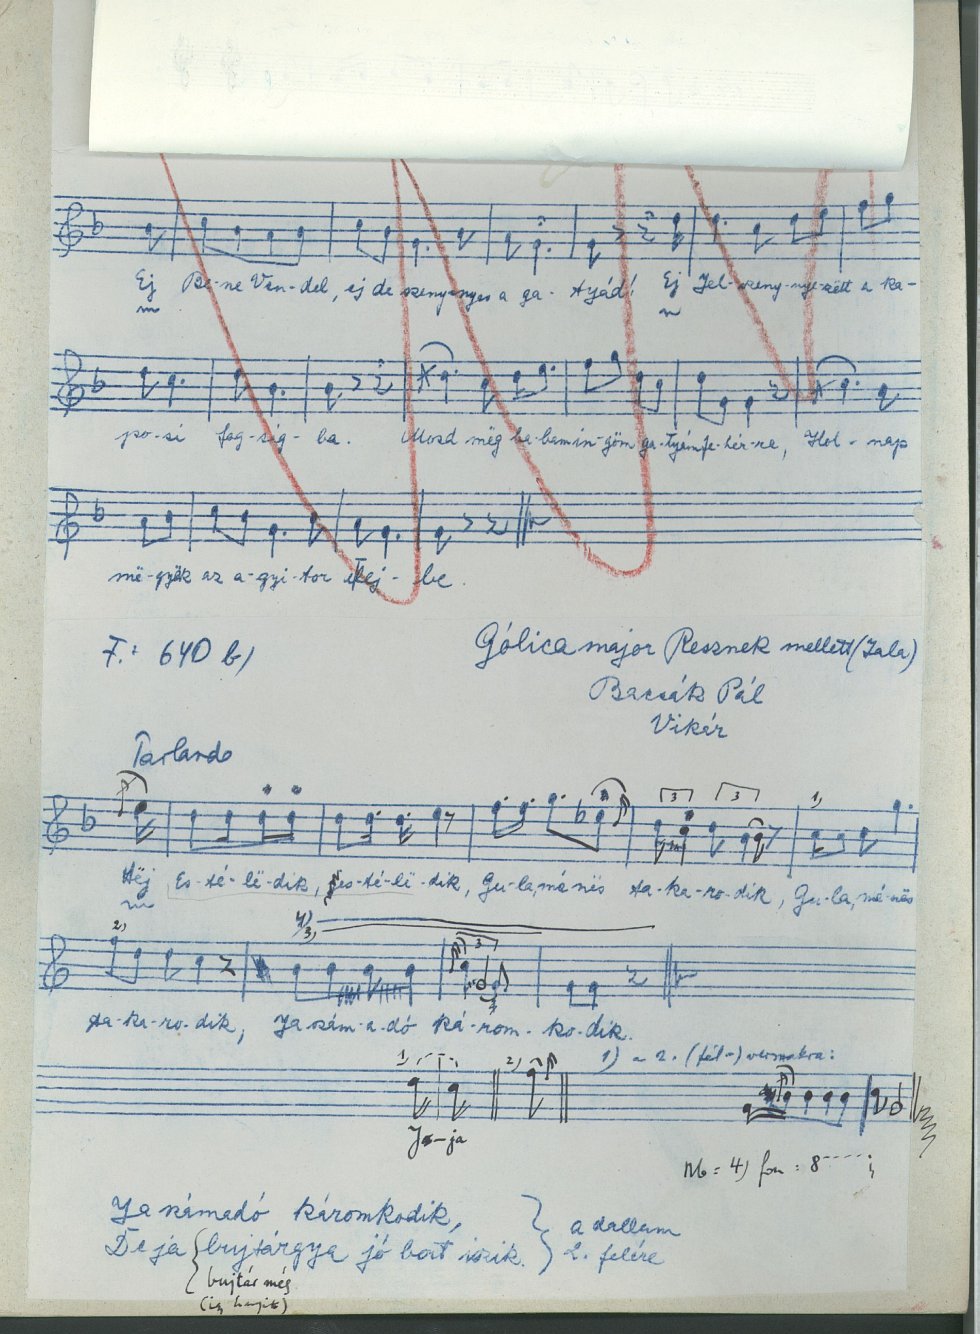 Ej Be-ne Ven-del, ej de szennyes a ga-tyád! Ej Jel- a ka-
po-si fog-ság-ba. Mozd még ba-bam in-göm ga-tyám fe-hér-re, Hol-nap
më-gyëk az a-gyi-tor elej-be.
F.: 640 b)
Gólica major Resznek mellett (Zala)
Bacsák Pál
Vikár
Parlando
3 3 1)
Hëj Es-té-lë-dik, es-té-lë-dik, Gu-la, mé-nës ta-ka-ro-dik, Gu-la, mé-nës
2) 4) 3) 3
ta-ka-ro-dik, Ja szám-a-dó ká-rom-ko-dik.
1) 2) 1) a 2. (fél-) versszakra:
Ja-ja
Nb = 4) fon: 8
Ja számadó káromkodik,
De ja bujtárgya jó bort iszik. } a dallam 2. felére
bujtár még